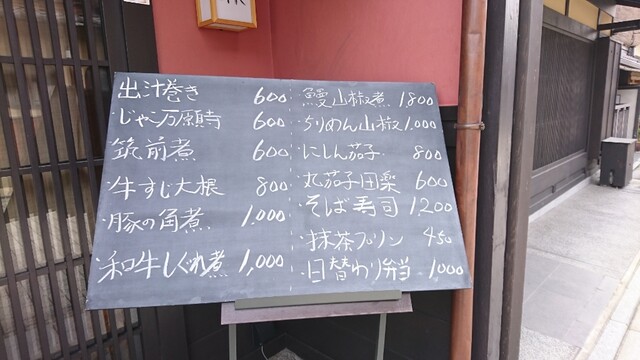 出汁巻き 600
・じゃこ万願寺 600
筑前煮 600
・牛すじ大根 800
・豚の角煮 1.000
・和牛しぐれ煮 1,000
・鰻山椒煮 1.800
・ちりめん山椒 1.000
・にしん茄子 800
・丸茄子田楽 600
・そば寿司 1.200
・抹茶プリン 450
・日替わり弁当 - 1000